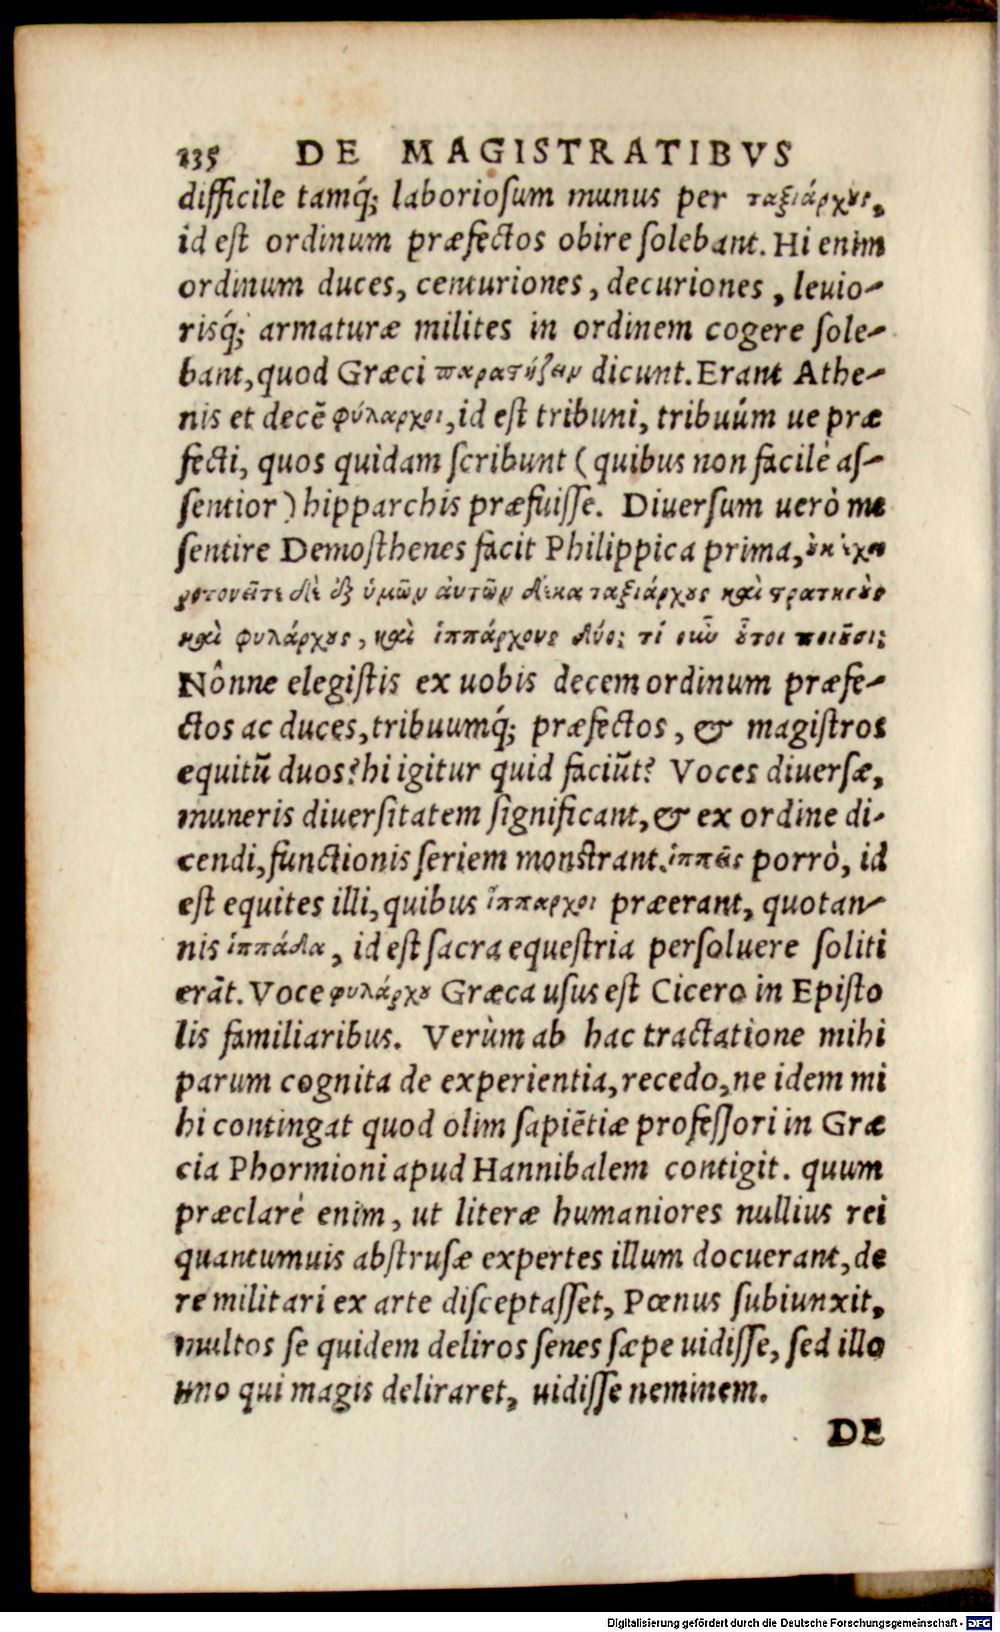 135 DE MAGISTRATIBVS
difficile tamq́; laboriosum munus per ταξιάρχους,
id est ordinum præfectos obire solebant. Hi enim
ordinum duces, centuriones, decuriones, leuio-
risq́; armaturæ milites in ordinem cogere sole-
bant, quod Græci dicunt. Erant Athe-
nis et decē φύλαρχοι, id est tribuni, tribuúm ue præ
fecti, quos quidam scribunt (quibus non facilè as-
sentior) hipparchis præfuisse. Diuersum uerò me
sentire Demosthenes facit Philippica prima, ἐκ ἐχει
ροτονεῖτε δὲ ἐξ ὑμῶν αὐτῶν δέκα ταξιάρχους καὶ στρατηγοὺς
καὶ φυλάρχους, καὶ ἱππάρχους δύο; τί οὖν οὗτοι ποιοῦσι;
Nônne elegistis ex uobis decem ordinum præfe-
ctos ac duces, tribuumq́; præfectos, & magistros
equitū duos? hi igitur quid faciūt? Voces diuersæ,
muneris diuersitatem significant, & ex ordine di-
cendi, functionis seriem monstrant. ἱππεῖς porrò, id
est equites illi, quibus ἵππαρχοι præerant, quotan-
nis ἱππάδα, id est sacra equestria persoluere soliti
erāt. Voce φυλάρχου Græca usus est Cicero in Episto
lis familiaribus. Verùm ab hac tractatione mihi
parum cognita de experientia, recedo, ne idem mi
hi contingat quod olim sapiētiæ professori in Græ
cia Phormioni apud Hannibalem contigit. quum
præclarè enim, ut literæ humaniores nullius rei
quantumuis abstrusæ expertes illum docuerant, de
re militari ex arte disceptasset, Pœnus subiunxit,
multos se quidem deliros senes sæpe uidisse, sed illo
uno qui magis deliraret, uidisse neminem.
DE
Digitalisierung gefördert durch die Deutsche Forschungsgemeinschaft - DFG